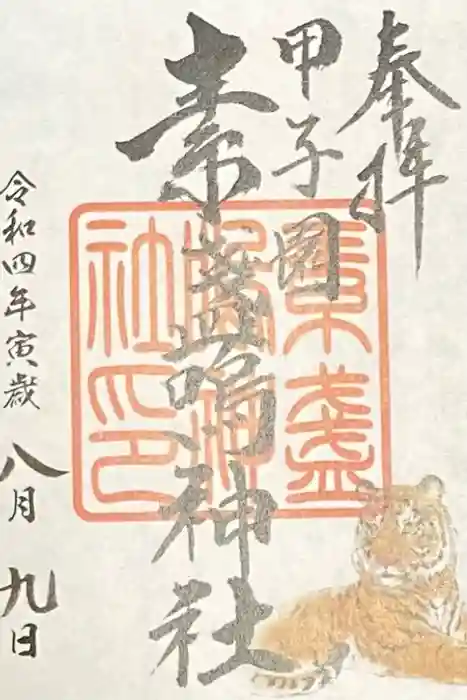 奉拝
甲子園
素盞嗚神社
素盞
嗚神
社印
令和四年寅歳 八月 九日